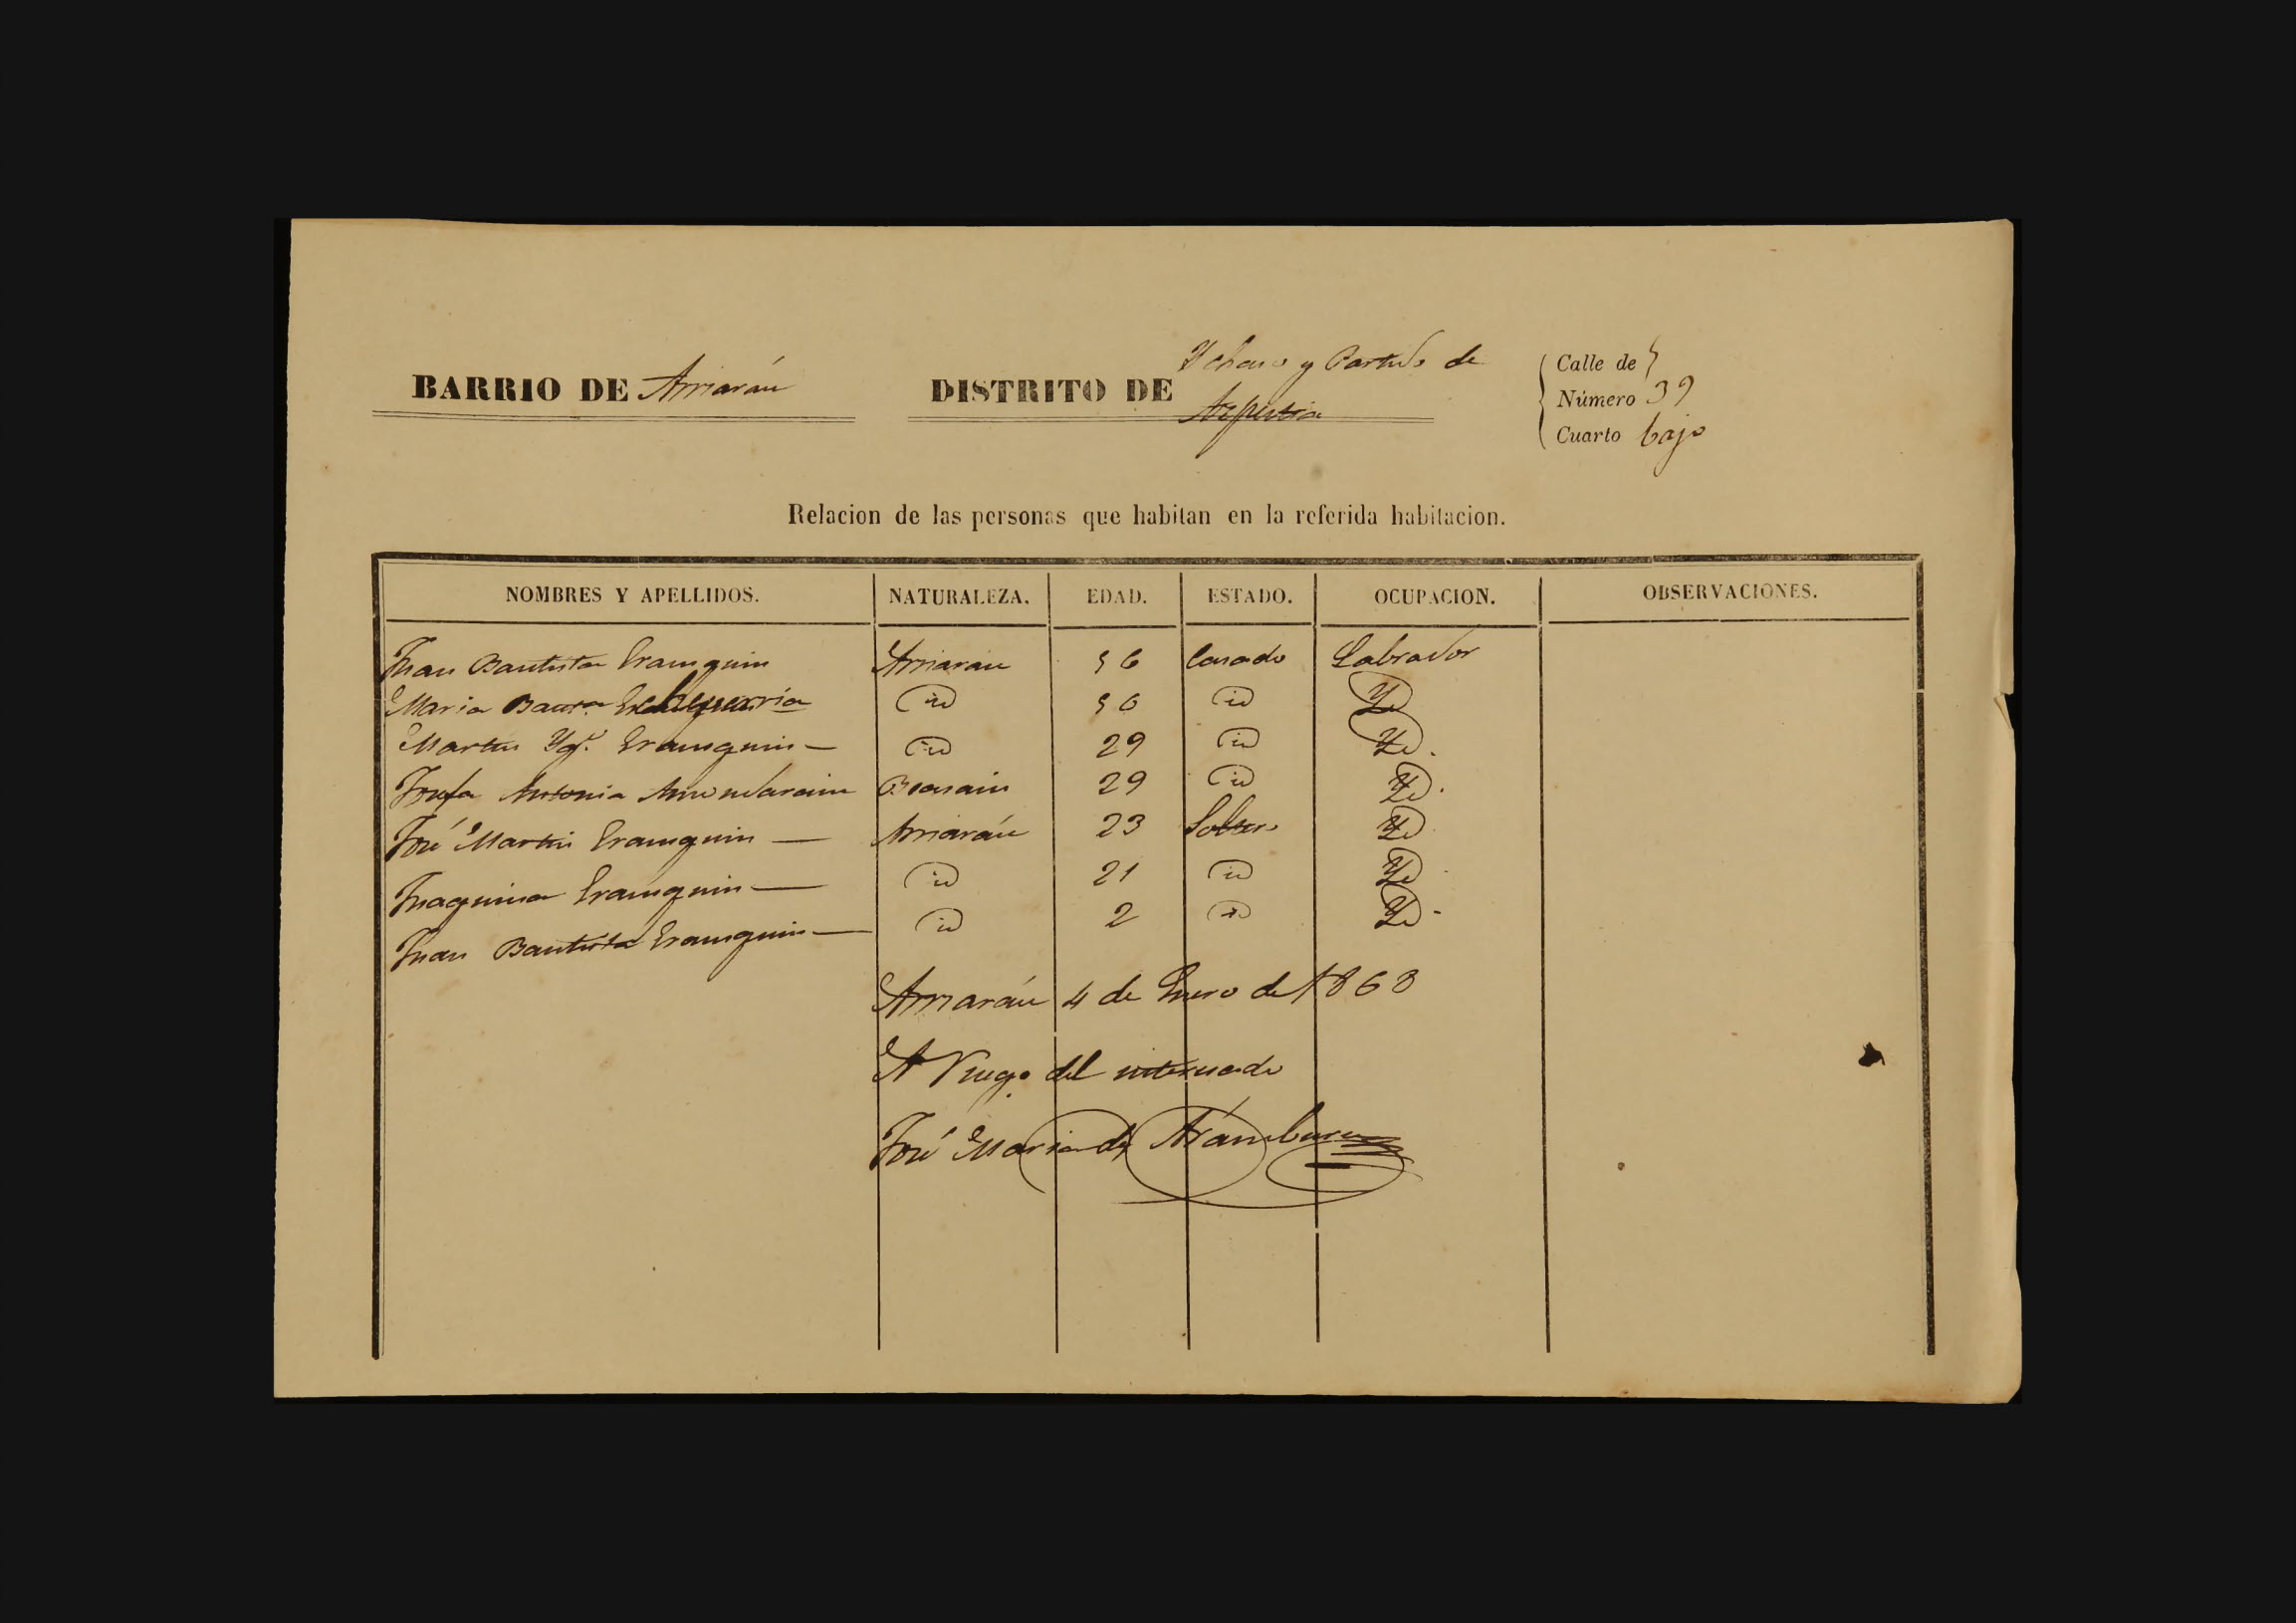 BARRIO DE Arriarán
DISTRITO DE Ychaso y Partido de
Azpeitia
Calle de
Número 39
Cuarto bajo
Relacion de las personas que habitan en la referida habitacion.
NOMBRES Y APELLIDOS. NATURALEZA. EDAD. ESTADO. OCUPACION. OBSERVACIONES.
Juan Bautista Erausquin Arriarán 56 Casado Labrador
Maria Bauta Echeverria id 56 id Yd
Martin Ygo. Erausquin — id 29 id Yd.
Josefa Antonia Amundarain Beasain 29 id Yd.
José Martin Erausquin — Arriarán 23 Soltero Yd
Juaquina Erausquin — id 21 id Yd
Juan Bautista Erausquin — id 2 id Yd.
Arriarán 4 de Enero de 1863
A Ruego del interesado
José Maria de Arámburu